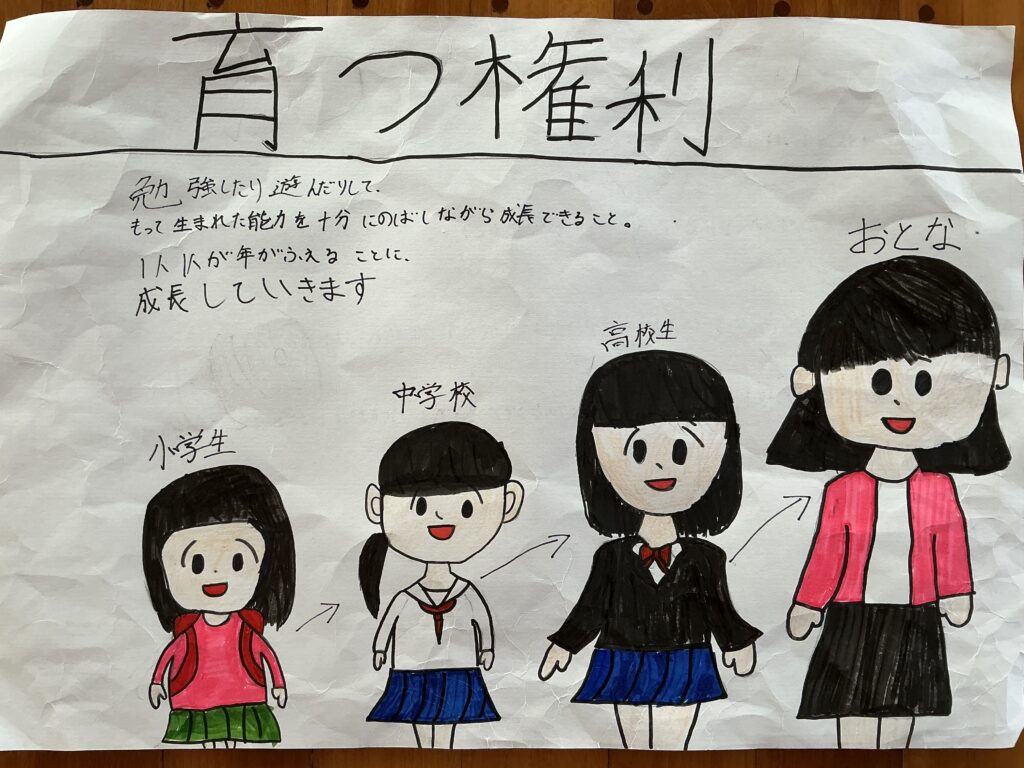 育つ権利
勉強したり遊んだりして、
もって生まれた能力を十分にのばしながら成長できること。
1人1人が年がふえることに、
成長していきます
おとな
高校生
中学校
小学生